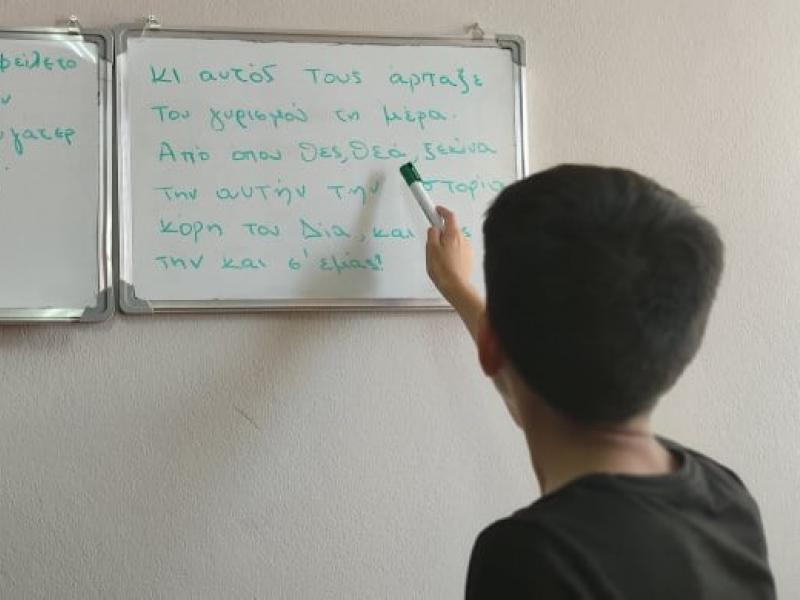 φείλετο
ν
γατερ
κι αυτός τους άρπαξε
του γυρισμού τη μέρα.
Από όπου θες, θεά, ξεκίνα
την αυτήν την στορία
κόρη του Δία, και ς
την και σ' εμάς!